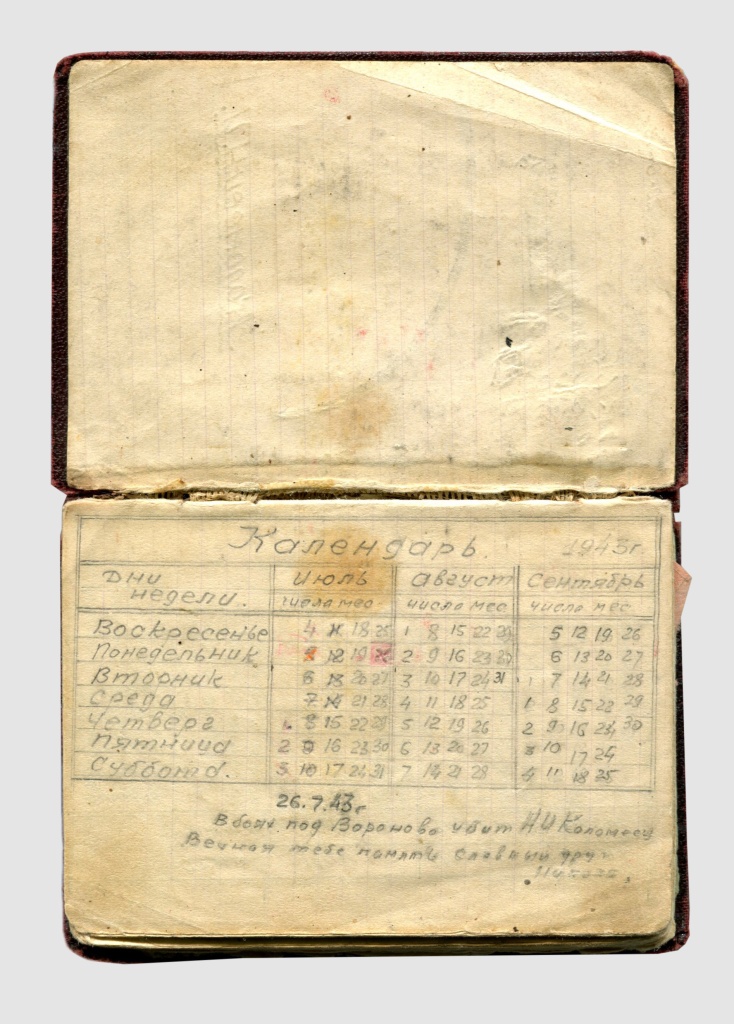 Календарь. 1943г
Дни недели. Июль Август Сентябрь
числа мес числа мес числа мес.
Воскресенье 4 11 18 25 1 8 15 22 29 5 12 19 26
Понедельник 5 12 19 26 2 9 16 23 30 6 13 20 27
Вторник 6 13 20 27 3 10 17 24 31 7 14 21 28
Среда 7 14 21 28 4 11 18 25 1 8 15 22 29
Четверг 1 8 15 22 29 5 12 19 26 2 9 16 23 30
Пятница 2 9 16 23 30 6 13 20 27 3 10 17 24
Суббота. 3 10 17 24 31 7 14 21 28 4 11 18 25
26.7.43г
В боях под Вороново убит Н И Коломеец
Вечная тебе память славный друг